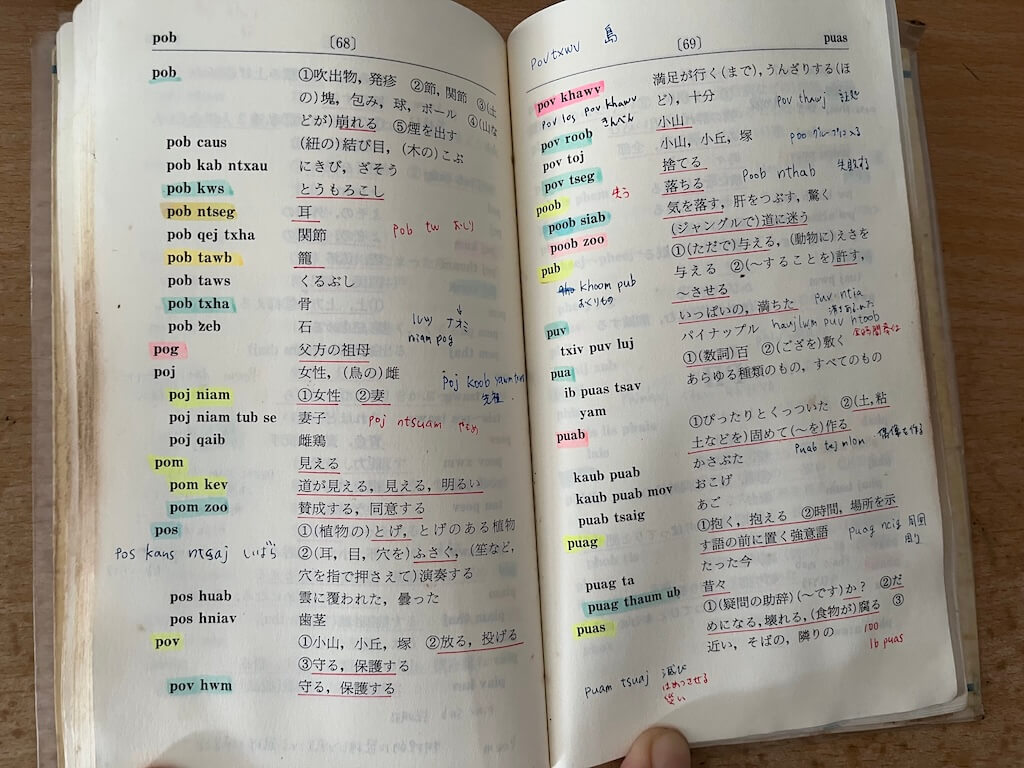 pob 〔68〕
pob ①吹出物，発疹 ②節，関節 ③(土
の)塊，包み，球，ボール ④(山な
どが)崩れる ⑤煙を出す
pob caus (紐の)結び目，(木の)こぶ
pob kab ntxau にきび，ざそう
pob kws とうもろこし
pob ntseg 耳
pob qej txha 関節 pob tw おしり
pob tawb 籠
pob taws くるぶし
pob txha 骨
pob zeb 石
niam pog
pog 父方の祖母
poj 女性，(鳥の)雌
poj koob yawm
先祖
poj niam ①女性 ②妻
poj niam tub se 妻子 poj ntsuam やもめ
poj qaib 雌鶏
pom 見える
pom kev 道が見える，見える，明るい
pom zoo 賛成する，同意する
pos ①(植物の)とげ，とげのある植物
pos kaus ntsaj いばら ②(耳，目，穴を)ふさぐ，(笙など，
穴を指で押さえて)演奏する
pos huab 雲に覆われた，曇った
pos hniav 歯茎
pov ①小山，小丘，塚 ②放る，投げる
③守る，保護する
pov hwm 守る，保護する
〔69〕 puas
pov txwv 島
pov khawv 満足が行く(まで)，うんざりする(ほ
ど)，十分 pov thawj
pov los pov khawv
pov roob 小山
pov toj 小山，小丘，塚
pov tseg 捨てる
poob 失う 落ちる poob nthab 失敗する
poob siab 気を落す，肝をつぶす，驚く
poob zoo (ジャングルで)道に迷う
pub ①(ただで)与える，(動物に)えさを
与える ②(～することを)許す，
～させる
khoom pub
おくりもの
puv いっぱいの，満ちた puv ntia
txiv puv luj パイナップル havjlwm puv ntoob
pua ①(数詞)百 ②(ござを)敷く
ib puas tsav あらゆる種類のもの，すべてのもの
yam
puab ①ぴったりとくっついた ②(土，粘
土などを)固めて(～を)作る
puab tej mlom 偶像を作る
kaub puab かさぶた
kaub puab mov おこげ
puab tsaig あご
puag ①抱く，抱える ②時間，場所を示
す語の前に置く強意語 puag ncig 周囲
周り
puag ta たった今
puag thaum ub 昔々
puas ①(疑問の助辞)(～です)か？ ②だ
めになる，壊れる，(食物が)腐る ③
近い，そばの，隣りの 100
ib puas
puam tsuaj 滅び
はめつさせる